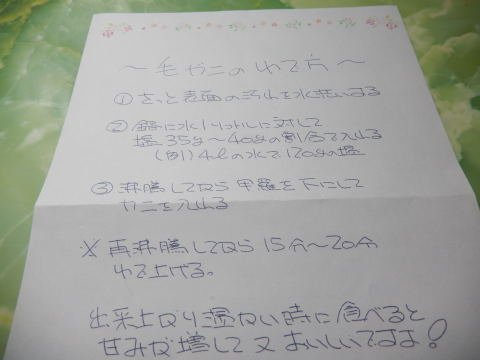 ～毛ガニのゆで方～
① さっと表面の汚れを水洗いする
② 鍋に水1リットルに対して
塩35g～40gの割合で入れる
(例) 4ℓの水で120gの塩
③ 沸騰してから甲羅を下にして
カニを入れる
※ 再沸騰してから15分～20分
ゆで上げる。
出来上がり温かい時に食べると
甘みが増して又おいしいですよ!